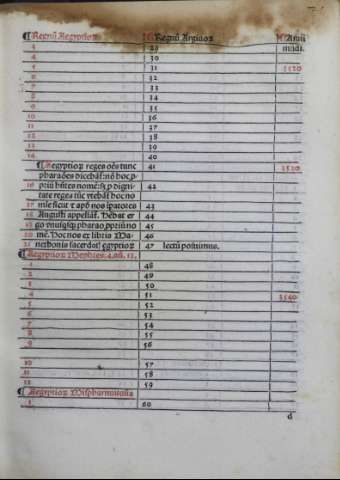 ¶Regnū Aegyptioꝝ Regnū Argiuoꝝ Anni
29 mūdi.
4 30
5 31 3520
6 32
7 33
8 34
9 35
10 36
11 37
12 38
13 39
14 40
¶Aegyptioꝝ reges oēs tunc 41 3530
pharaōes dicebāt: nō hoc ꝓ
16 priū hītes nomē: sꝫ ꝓ digni- 42
tate reges tūc vtebāt hoc no
17 mīe sicut ⁊ apō nos īpatores 43
18 Augusti appellāt. Hebat er 44
19 go vnusqsqꝫ pharao ꝓpriū no 45
20 mē. Hoc nos ex libris Ma- 46
21 nethonis sacerdoť egyptioꝝ 47 lectū posuimus.
¶Aegyptioꝝ Mephres. 4. āñ. 12.
1 48
2 49
3 50
4 51 3540
5 52
6 53
7 54
8 55
9 56
10 57
11 58
12 59
¶Aegyptioꝝ Mispharmutosis
1 60
d